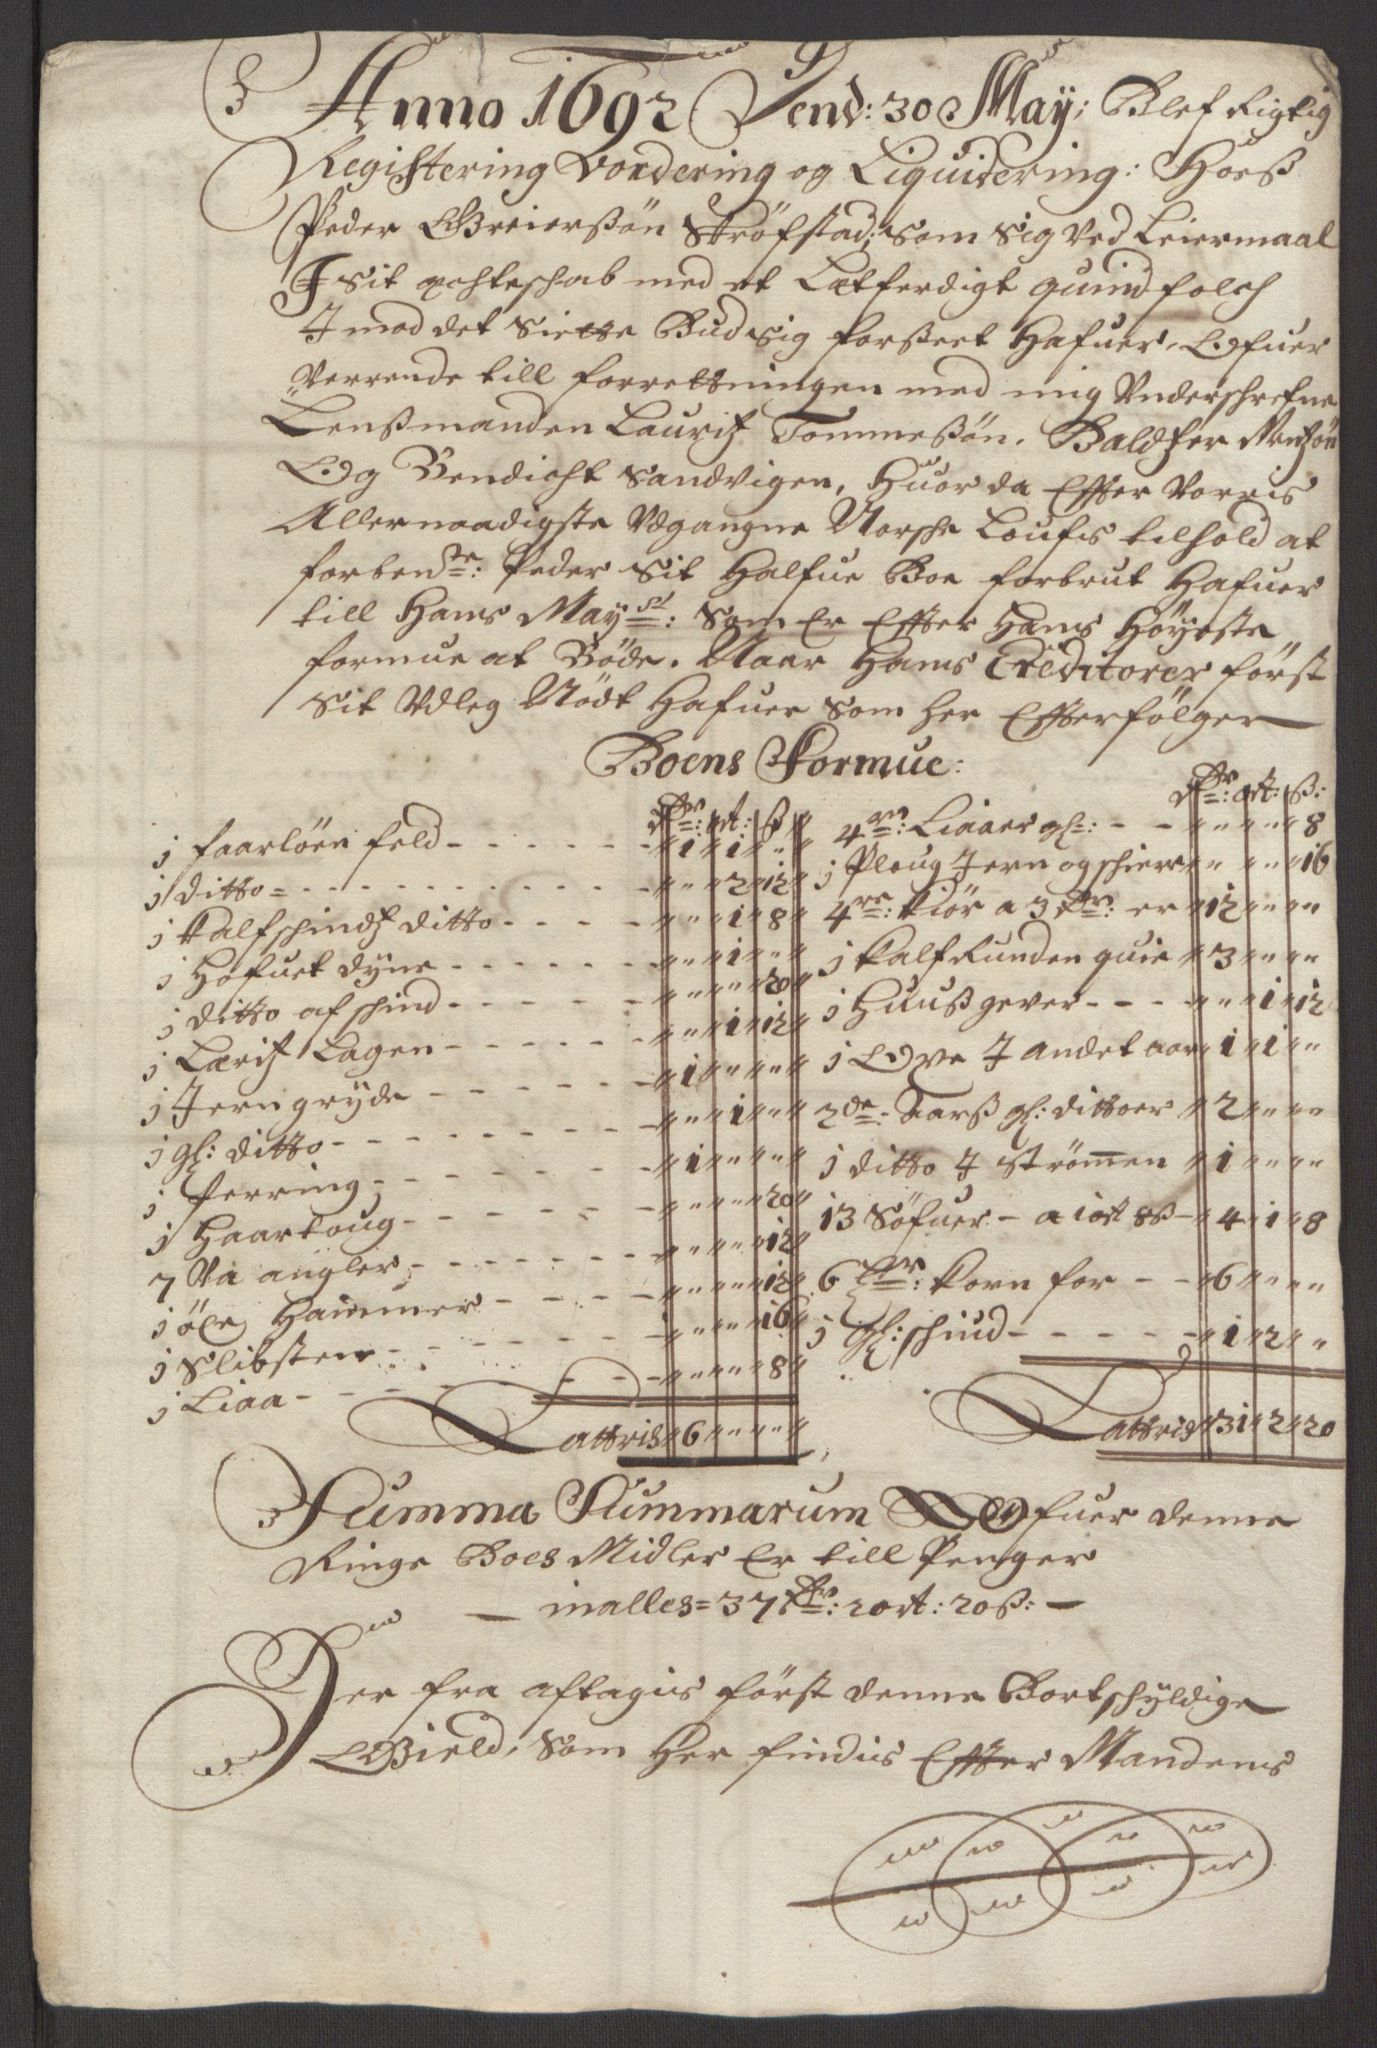 Anno 1692 Dend: 30 May: Blef Rigtig
Registering Vordering og Liquidering: Hoeß
Peder Greierßön Ströfstad; som sig ved Leiermaal
I sit echteschab med et Letferdigt quindfolch
Imod det siette Bud sig forßeet Hafuer, Ofuer
Verrende till forrettningen med mig Underschrefne
Lenßmanden Lauritz Tommeßön. Baldtzer
Og Bendicht Sandvigen, Huor da Effter Vorris
Allernaadigste Udgangne Norsche Loufs tilhold at
forbende: Peder sit Halfue Boe forbrut Hafuer
till Hans Mayst: som Er Effter Hans Höyeste
formue at Böde. Naar Hans Creditorer först
sit Udleg Nödt Hafuer som her Effterfölger
Boens Formue:
dlr: ort: ß
j faarlöen feld - - - - - " 1 " 1 " "
j ditto = - - - - - " " " 2 " 12 "
j kalfschindz ditto - - - - " " " 1 " 8 "
j Hofuet dyne - - - - - " " " 1 " " "
j ditto af schind - - - - - " " " " 20 "
j Leritz Lagen - - - - - " " " 1 " 12 "
j Jern gryde - - - - - " 1 " " " " "
j gl: ditto - - - - - " " " 1 " " "
j ferring - - - - - " 1 " " " " "
j Haartoug - - - - - " " " " 20 "
7 Va angler - - - - - " " " " 12 "
j öxe Hammer - - - - " " " " 12 "
j Slibsten - - - - - " " " " 16 "
j Liaa - - - - - " " " " 8 "
Lattris " 6 " " " " "
dlr: ort: ß:
4re: Liaaer gl: - - " " " " " 8
j Ploug Jern og schier " " " " " 16
4re: kiör a 3 dlr: er " 12 " " " "
j kalf Runden quie " 3 " " " "
j Huuß gever - - - " " " 1 " 12
j Oxe I andet aar " 1 " 1 " "
2de - Aarß gl: dittoer " 2 " " " "
j ditto I Strömen " 1 " " " "
13 Söfuer - a 1 ort 8ß - " 4 " 1 " 8
6 korn for - - " 6 " " " "
j gl: schind - - - - - " 1 " 2 " "
Lattris " 31 " 2 " 20
Summa Summarum Ofuer denne
Ringe Boes Midler Er till Penger
— inalles = 37 dlr: 2 ort: 20 ß: —
Der fra aftagis först denne Bortschyldige
Gield, som Her findis Effter Mandens